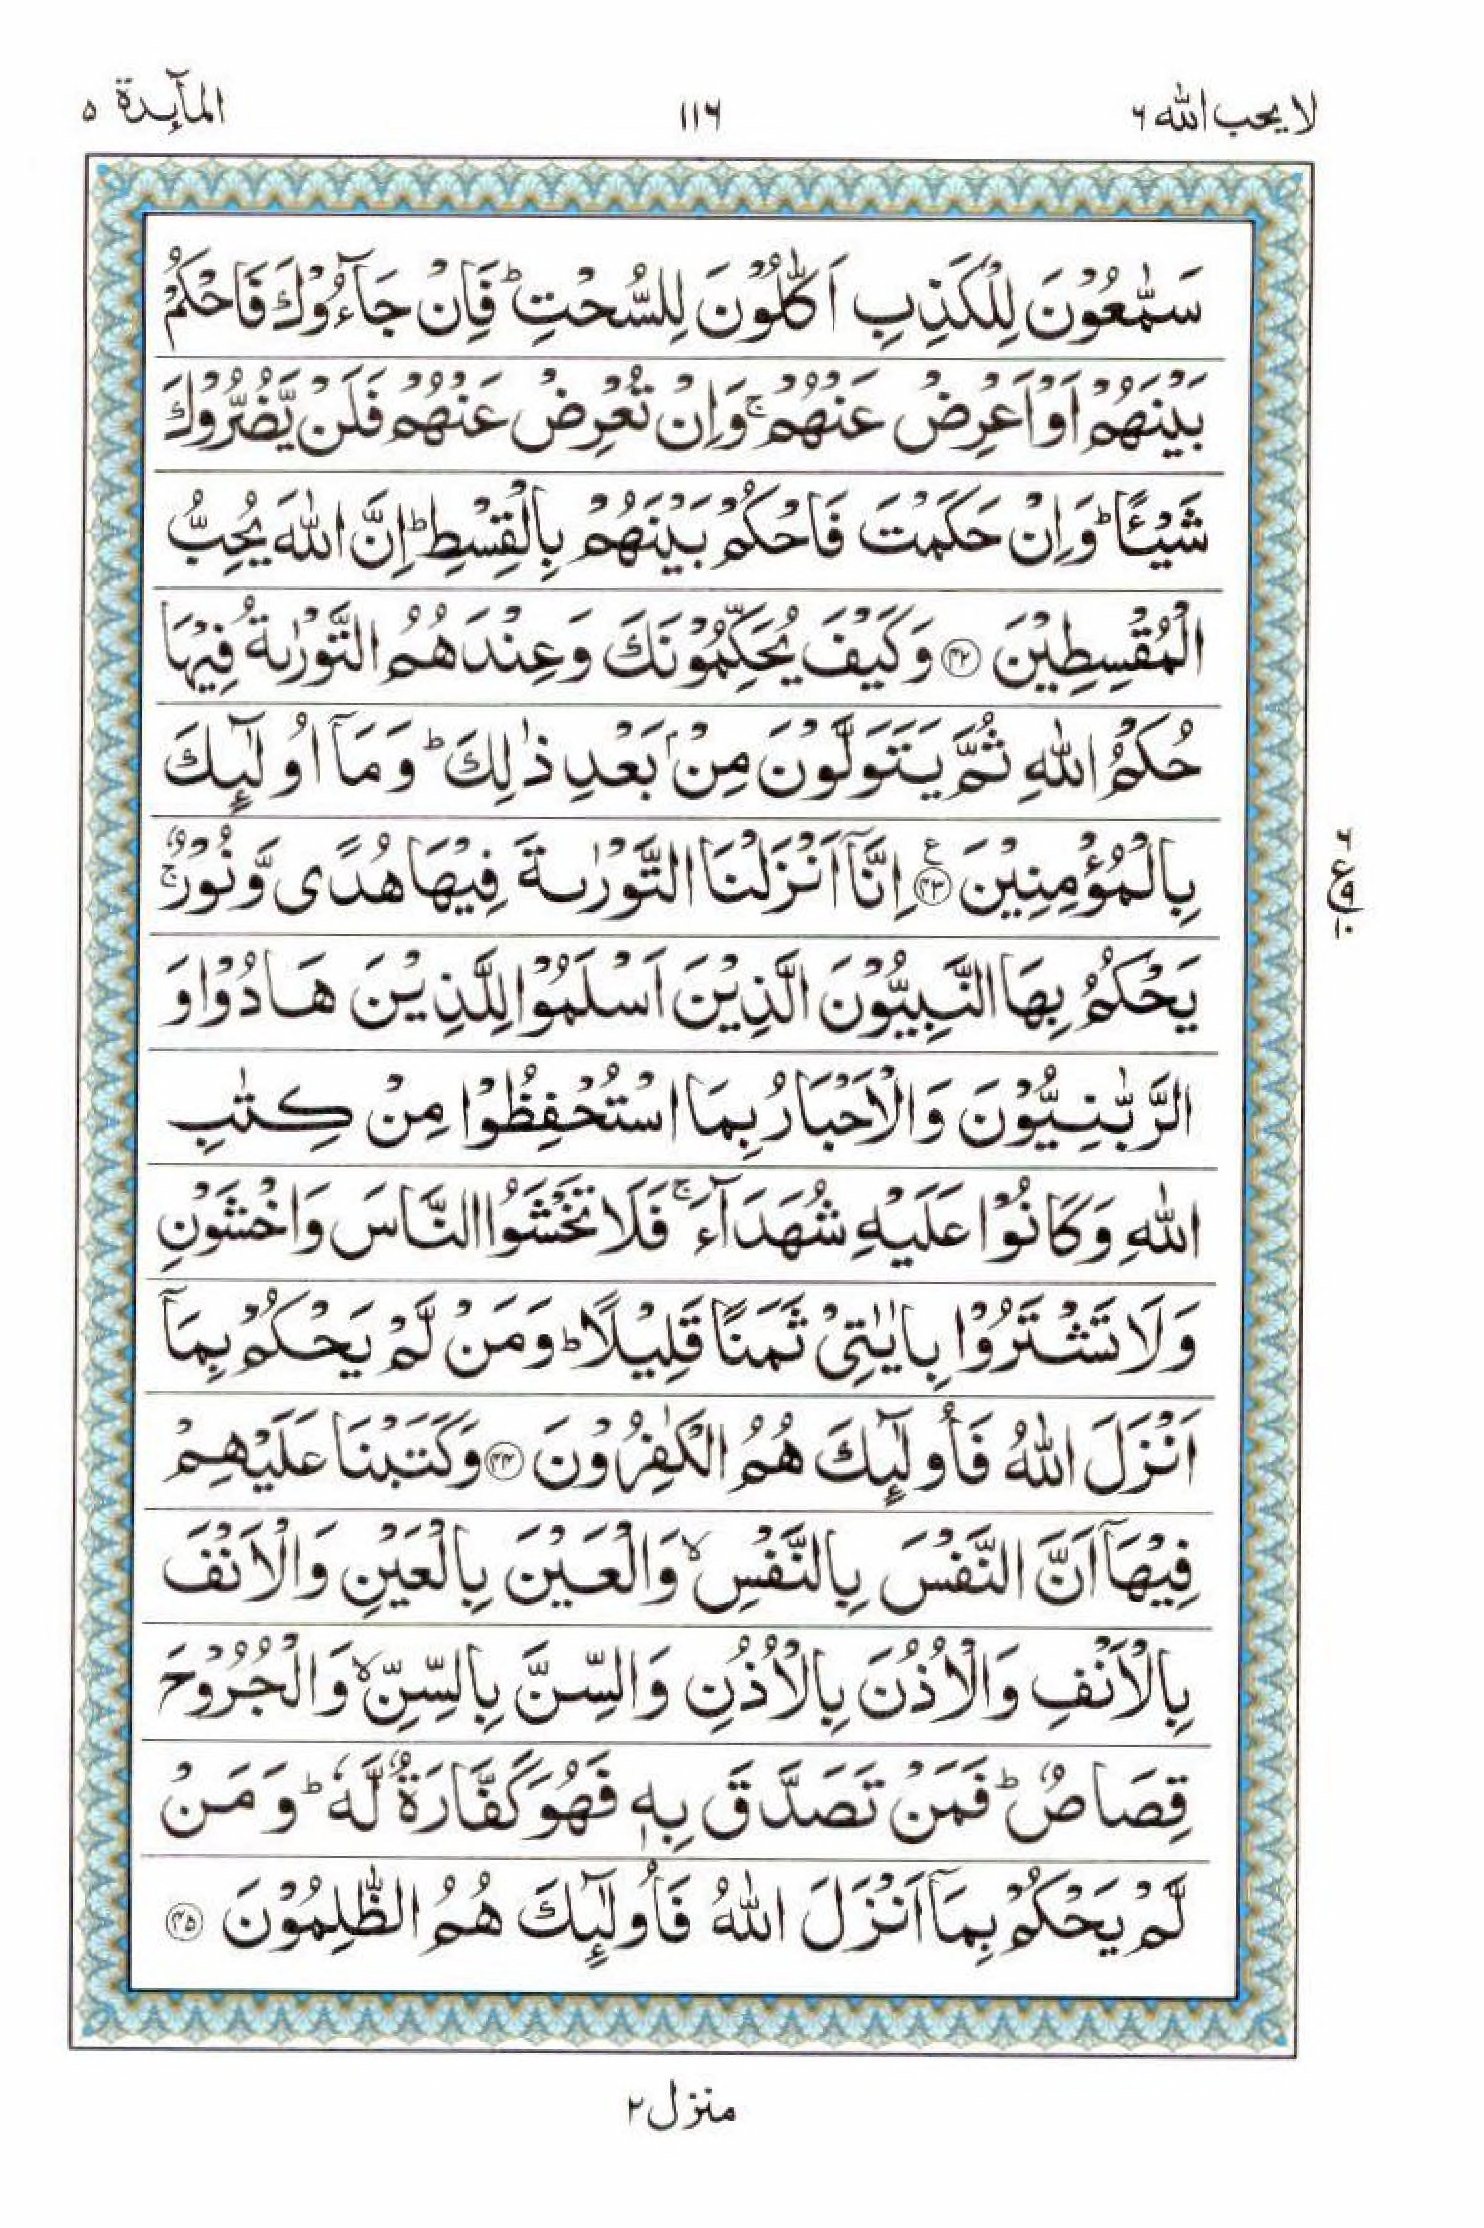 لا يحب الله ٦
١١٦
المآىِٕدة ٥
سَمّٰعُوْنَ لِلْكَذِبِ اَكّٰلُوْنَ لِلسُّحْتِ ؕ فَاِنْ جَآءُوْكَ فَاحْكُمْ
بَيْنَهُمْ اَوْ اَعْرِضْ عَنْهُمْ ۚ وَاِنْ تُعْرِضْ عَنْهُمْ فَلَنْ يَّضُرُّوْكَ
شَيْـًٔا ؕ وَاِنْ حَكَمْتَ فَاحْكُمْ بَيْنَهُمْ بِالْقِسْطِ ؕ اِنَّ اللّٰهَ يُحِبُّ
الْمُقْسِطِيْنَ ۝۴۲ وَكَيْفَ يُحَكِّمُوْنَكَ وَعِنْدَهُمُ التَّوْرٰىةُ فِيْهَا
حُكْمُ اللّٰهِ ثُمَّ يَتَوَلَّوْنَ مِنْۢ بَعْدِ ذٰلِكَ ؕ وَمَاۤ اُولٰٓىِٕكَ
بِالْمُؤْمِنِيْنَ ۝۴۳ ع اِنَّاۤ اَنْزَلْنَا التَّوْرٰىةَ فِيْهَا هُدًى وَّنُوْرٌ ۚ
يَحْكُمُ بِهَا النَّبِيُّوْنَ الَّذِيْنَ اَسْلَمُوْا لِلَّذِيْنَ هَادُوْا وَ
الرَّبّٰنِيُّوْنَ وَالْاَحْبَارُ بِمَا اسْتُحْفِظُوْا مِنْ كِتٰبِ
اللّٰهِ وَكَانُوْا عَلَيْهِ شُهَدَآءَ ۚ فَلَا تَخْشَوُا النَّاسَ وَاخْشَوْنِ
وَلَا تَشْتَرُوْا بِاٰيٰتِيْ ثَمَنًا قَلِيْلًا ؕ وَمَنْ لَّمْ يَحْكُمْ بِمَاۤ
اَنْزَلَ اللّٰهُ فَاُولٰٓىِٕكَ هُمُ الْكٰفِرُوْنَ ۝۴۴ وَكَتَبْنَا عَلَيْهِمْ
فِيْهَاۤ اَنَّ النَّفْسَ بِالنَّفْسِ ۙ وَالْعَيْنَ بِالْعَيْنِ وَالْاَنْفَ
بِالْاَنْفِ وَالْاُذُنَ بِالْاُذُنِ وَالسِّنَّ بِالسِّنِّ ۙ وَالْجُرُوْحَ
قِصَاصٌ ؕ فَمَنْ تَصَدَّقَ بِهٖ فَهُوَ كَفَّارَةٌ لَّهٗ ؕ وَمَنْ
لَّمْ يَحْكُمْ بِمَاۤ اَنْزَلَ اللّٰهُ فَاُولٰٓىِٕكَ هُمُ الظّٰلِمُوْنَ ۝۴۵
٦
ع ٩
١٠
منزل ٢